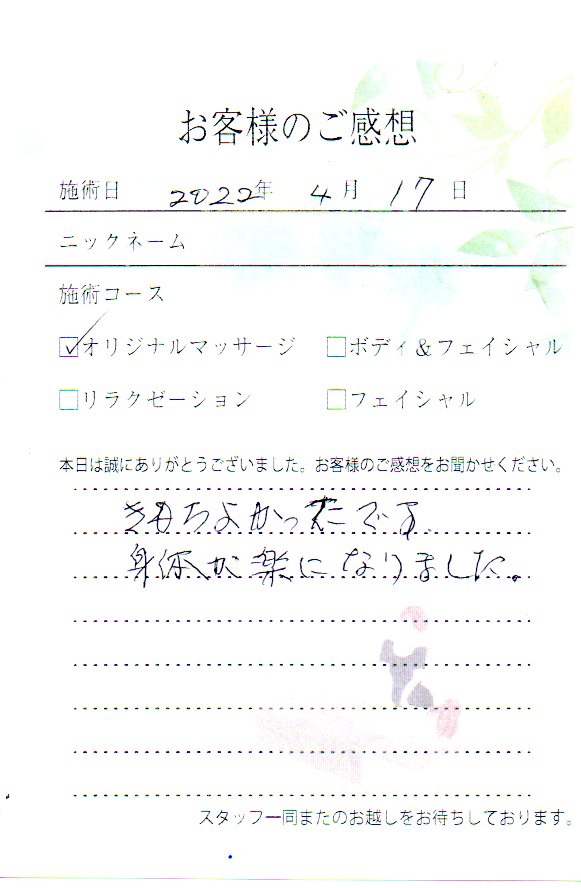 お客様のご感想
施術日 2022年 4月 17日
ニックネーム
施術コース
☑オリジナルマッサージ □ボディ&フェイシャル
□リラクゼーション □フェイシャル
本日は誠にありがとうございました。お客様のご感想をお聞かせください。
きもちよかったです.
身体が楽になりました。
スタッフ一同またのお越しをお待ちしております。